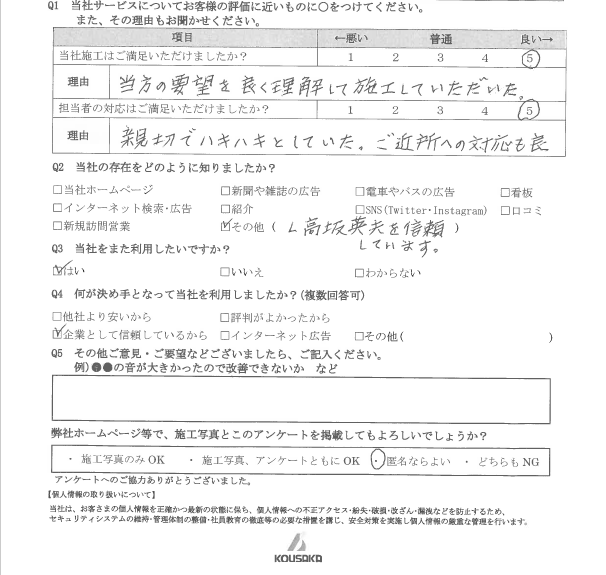 Q1 当社サービスについてお客様の評価に近いものに○をつけてください。
また、その理由もお聞かせください。
項目 ←悪い 普通 良い→
当社施工はご満足いただけましたか? 1 2 3 4 5
理由 当方の要望を良く理解して施工していただいた。
担当者の対応はご満足いただけましたか? 1 2 3 4 5
理由 親切でハキハキとしていた。ご近所への対応も良
Q2 当社の存在をどのように知りましたか?
□当社ホームページ □新聞や雑誌の広告 □電車やバスの広告 □看板
□インターネット検索・広告 □紹介 □SNS(Twitter・Instagram) □口コミ
□新規訪問営業 ☑その他( 高坂英夫を信頼 )
しています。
Q3 当社をまた利用したいですか?
☑はい □いいえ □わからない
Q4 何が決め手となって当社を利用しましたか?(複数回答可)
□他社より安いから □評判がよかったから
☑企業として信頼しているから □インターネット広告 □その他( )
Q5 その他ご意見・ご要望などございましたら、ご記入ください。
例)●●の音が大きかったので改善できないか など
弊社ホームページ等で、施工写真とこのアンケートを掲載してもよろしいでしょうか?
・ 施工写真のみ OK ・ 施工写真、アンケートともに OK ・ 匿名ならよい ・ どちらも NG
アンケートへのご協力ありがとうございました。
【個人情報の取り扱いについて】
当社は、お客さまの個人情報を正確かつ最新の状態に保ち、個人情報への不正アクセス・紛失・破損・改ざん・漏洩などを防止するため、
セキュリティシステムの維持・管理体制の整備・社員教育の徹底等の必要な措置を講じ、安全対策を実施し個人情報の厳重な管理を行います。
KOUSAKA